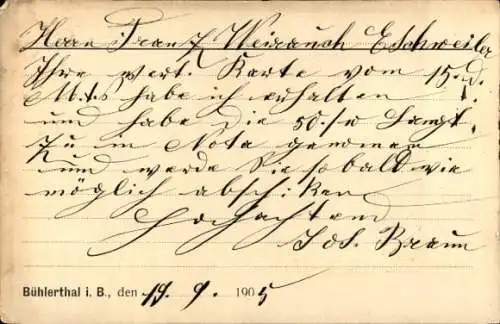 Herrn Franz Weirauch Eschweiler
Ihre wert. Karte vom 15. d.
Mts habe ich erhalten
und habe die 50
zu in Nota genomen
und werde Sie so bald wie
möglich abschiken
Hochachtend
Jos. Braun
Bühlerthal i. B., den 19. 9. 1905